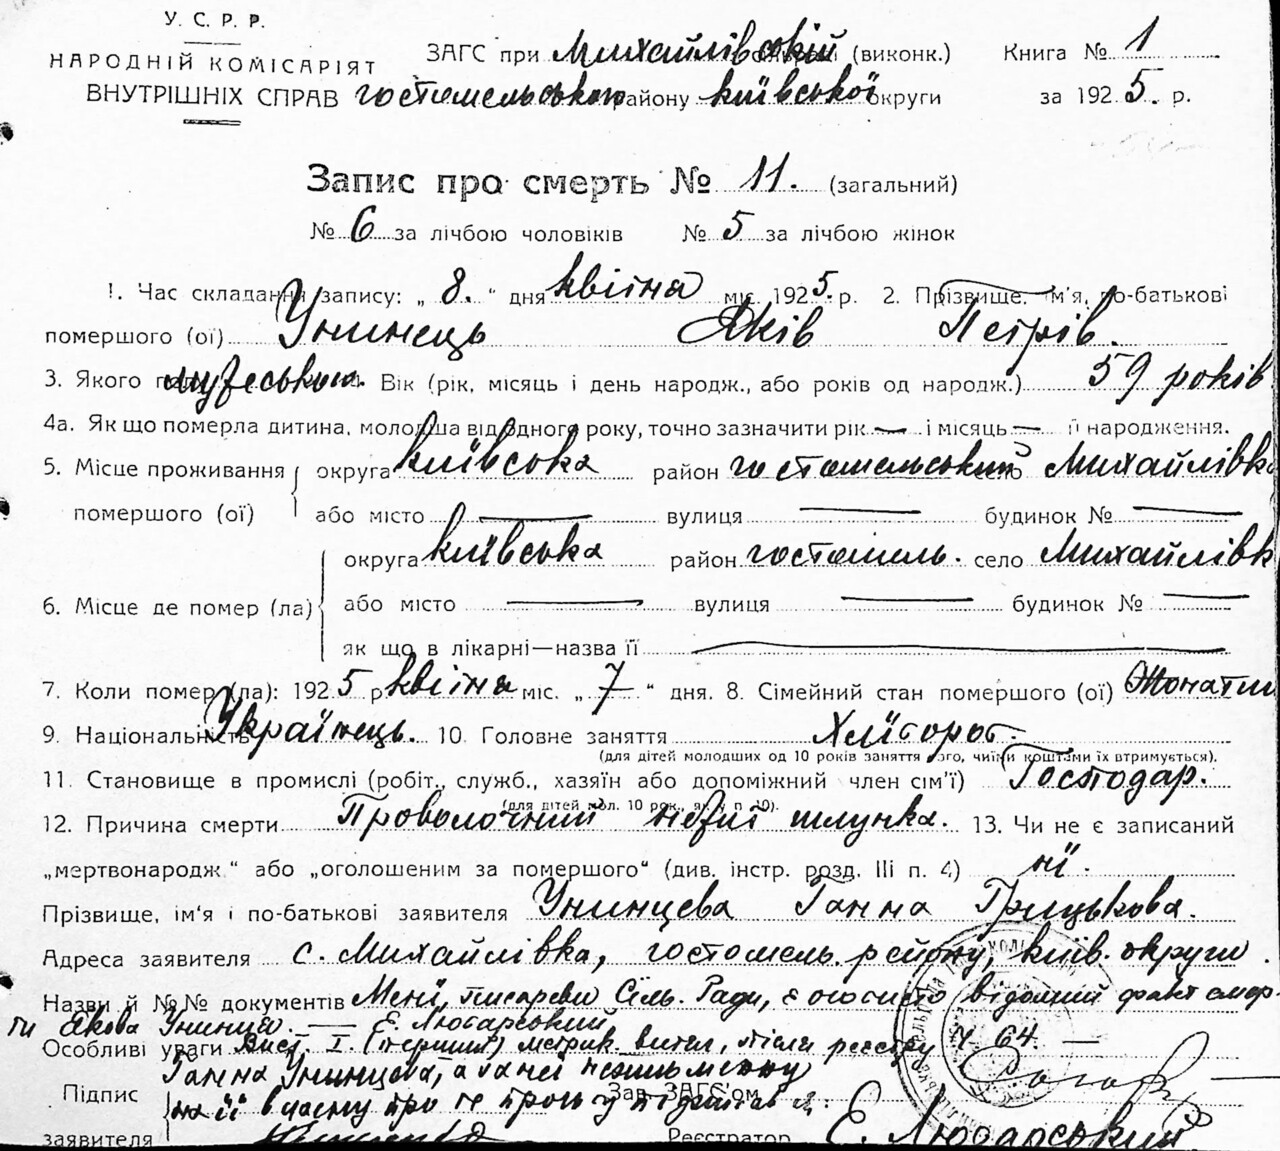 У. С. Р. Р.
НАРОДНІЙ КОМІСАРІЯТ
ВНУТРІШНІХ СПРАВ
ЗАГС при Михайлівській (виконк.) Книга № 1
гостомельського району київської округи за 1925. р.
Запис про смерть № 11. (загальний)
№ 6 за лічбою чоловіків № 5 за лічбою жінок
1. Час складання запису: „ 8. “ дня квітня міс. 1925. р. 2. Прізвище, ім'я, по-батькові
помершого (ої) Унинець Яків Петрів.
3. Якого мужеського. Вік (рік, місяць і день народж., або років од народж.) 59 років
4а. Як що померла дитина, молодша від одного року, точно зазначити рік — і місяць — її народження.
5. Місце проживання округа київська район гостомельський село Михайлівка
помершого (ої) або місто — вулиця — будинок № —
округа київська район гостомель. село Михайлівк
6. Місце де помер (ла) або місто — вулиця — будинок № —
як що в лікарні—назва її —
7. Коли помер (ла): 1925 р. квітня міс. „ 7 “ дня. 8. Сімейний стан помершого (ої) Жонатий
9. Національність Українець. 10. Головне заняття Хлібороб.
(для дітей молодших од 10 років заняття того, чиїми коштами їх втримується).
11. Становище в промислі (робіт., служб., хазяїн або допоміжний член сім'ї) Господар.
(для дітей мол. 10 рок., як у п 10).
12. Причина смерти шлунка. 13. Чи не є записаний
„мертвонародж“ або „оголошеним за помершого“ (див. інстр. розд. III п. 4) ні.
Прізвище, ім'я і по-батькові заявителя Унинцева Ганна Грицькова.
Адреса заявителя с. Михайлівка, гостомель. району, київ. округи.
Назви й №№ документів Мені, писареві Сіль. Ради, є особисто відомий факт смер-
ти Якова Унинця. — Є. Любарський
Особливі уваги Вид. I. (перший) метрик. витяг, після реєстру ч 64. —
Ганна Унинцева, а за неї
Підпис на її Зав. ЗАГС'ом
заявителя Реєстратор Є. Любарський